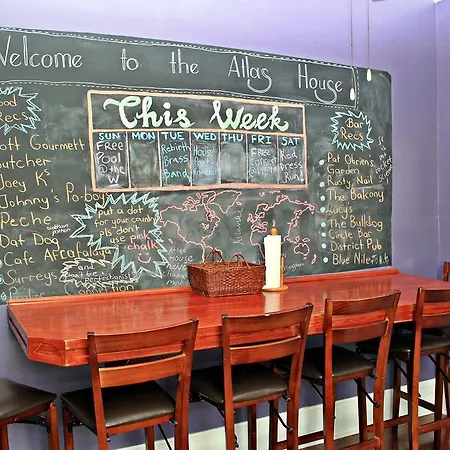 Welcome to the Atlas House
Food
Recs
oft Gourmet
Butcher
Joey K's
Johnny's Po-boy
Peche
Dat Dog
Cafe
Surreys
This Week
SUN MON TUE WED THU FRI SAT
Free
Pool
@ the
W
Rebirth
Brass
Band
House
Free
Concert
Red
Dress
Run
put a dot
for your country
pls don't
use pink
chalk
Bar
Recs
Pat O'Brien's
Garden
Rusty Nail
The Balcony
Lucy's
The Bulldog
Circle Bar
District Pub
Blue Nile